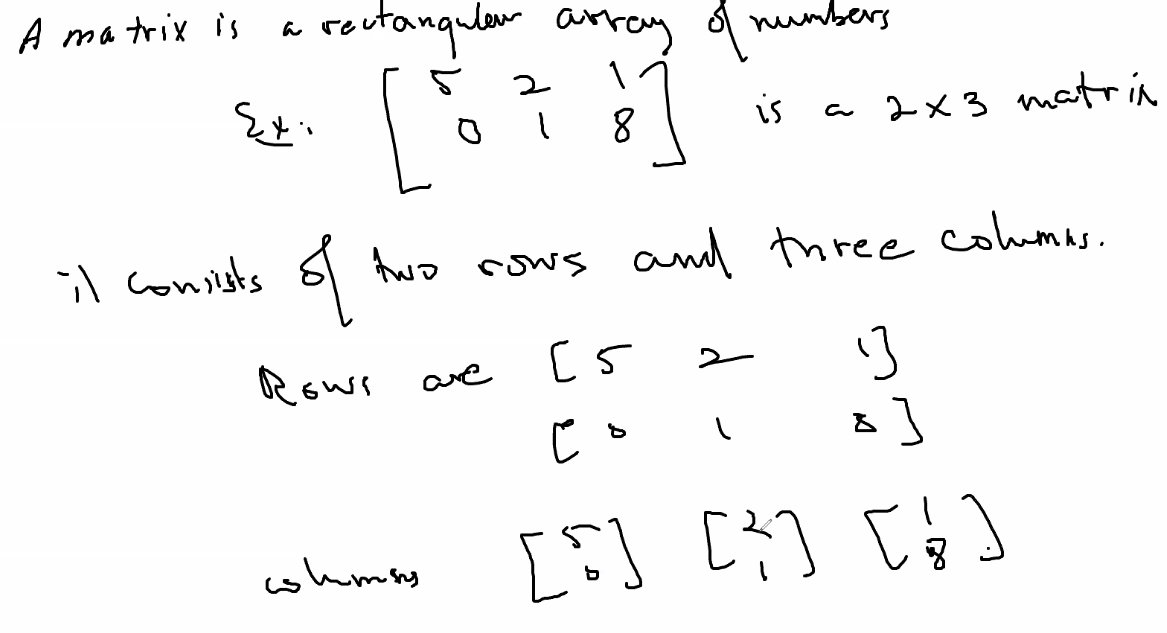 A matrix is a rectangular array of numbers
Ex: [5 2 1
0 1 8] is a 2 x 3 matrix
it consists of two rows and three columns.
Rows are [5 2 1]
[0 1 8]
columns [5 0] [2 1] [1 8]